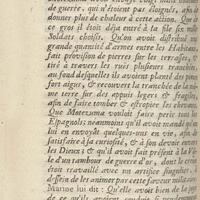 de guerre, qui n'étoient pas éloignés, afin de
donner plus de chaleur à cette action. Que de
ce gros il étoit déja entré à la file six mille
Soldats choisis. Qu'on avoit distribué une
grande quantité d'armes entre les Habitans,
fait provision de pierres sur les terrasses, &
tiré à travers les rues plusieurs tranchées
au fond desquelles ils avoient planté des pieux
fort aigus, & recouvert la tranchée de la même
terre sur des appuis legers & fragiles,
afin de faire tomber & estropier les chevaux.
Que Motezuma vouloit faire perir tous les
Espagnols; neanmoins qu'il avoit mandé qu'on
lui en envoyât quelques-uns en vie, afin de
satisfaire à sa curiosité, & à son devoir envers
les Dieux: & qu'il avoit fait present à la Ville
d'un tambour de guerre d'or, dont le creux
étoit travaillé avec un artifice singulier, à
dessein de les animer par cette faveur militaire.
Marine lui dit: Qu'elle avoit bien de la